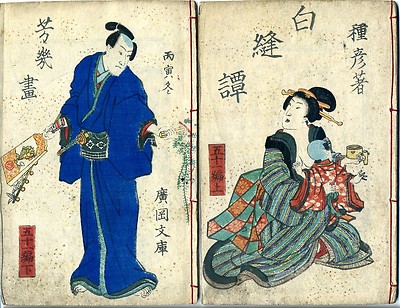 種彦著
白縫譚
五十一編上
丙寅冬
芳幾畫
廣岡文庫
五十一編下